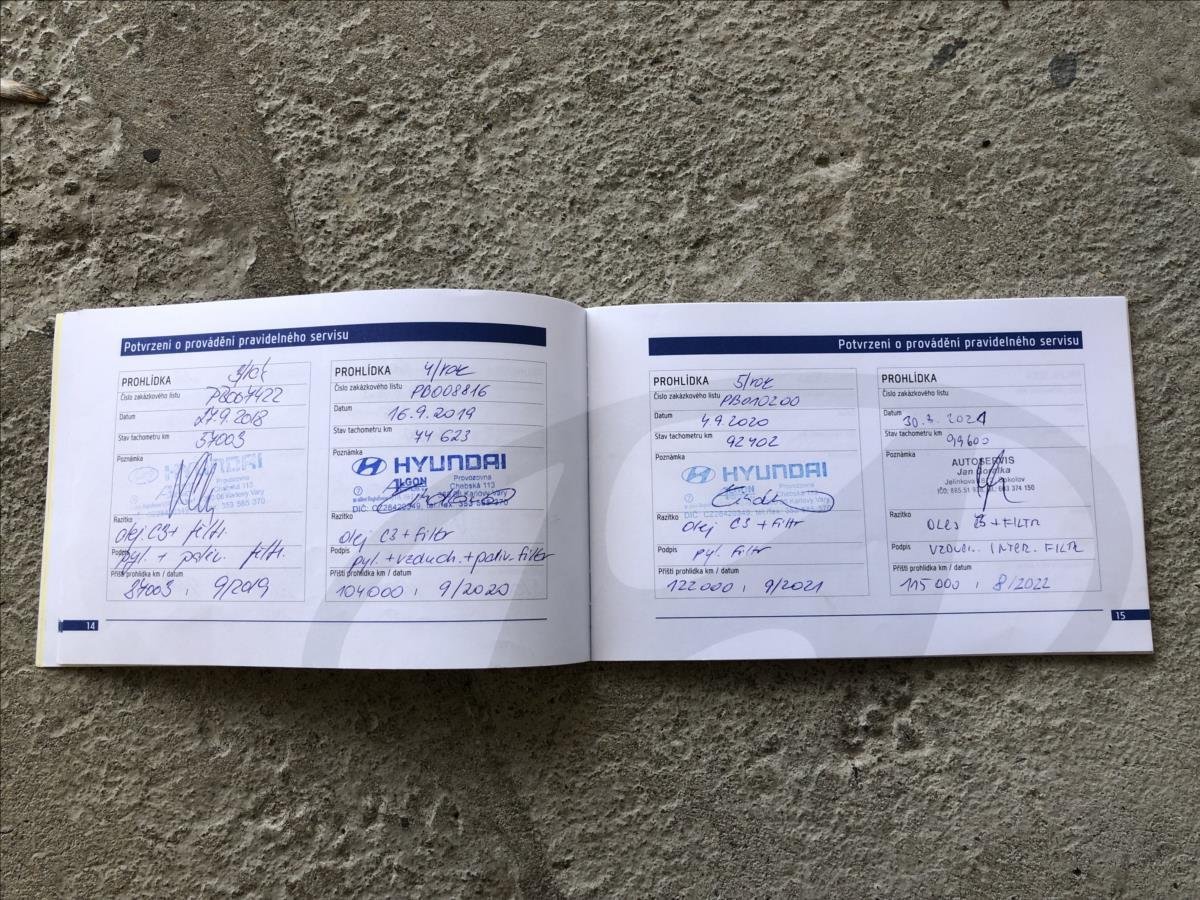 Potvrzení o provádění pravidelného servisu
PROHLÍDKA 3/rok
Číslo zakázkového listu
Datum 27.9.2018
Stav tachometru km 57003
Poznámka
HYUNDAI
Provozovna
Chebská 113
06 Karlovy Vary
353 585 370
Razítko
olej C3 + filtr.
Podpis
pyl. + paliv. filtr.
Příští prohlídka km / datum
87003, 9/2019
PROHLÍDKA 4/rok
Číslo zakázkového listu
PB008816
Datum
16.9.2019
Stav tachometru km 74 623
Poznámka
HYUNDAI
ALGON
Provozovna
Chebská 113
Karlovy Vary
DIČ: CZ26420349, tel./fax: 353 585 370
Razítko
olej C3 + filtr
Podpis
pyl + vzduch. + paliv. filtr
Příští prohlídka km / datum
104000, 9/2020
14
Potvrzení o provádění pravidelného servisu
PROHLÍDKA 5/rok
Číslo zakázkového listu
PB010200
Datum 4.9.2020
Stav tachometru km 92402
Poznámka
HYUNDAI
Provozovna
Chebská 113
Karlovy Vary
Razítko
olej C3 + filtr
Podpis pyl. filtr
Příští prohlídka km / datum
122000, 9/2021
PROHLÍDKA
Číslo zakázkového listu
Datum 30.3.2021
Stav tachometru km 99600
Poznámka
AUTOSERVIS
Jan
Jelínkova Sokolov
Razítko
OLEJ + FILTR
Podpis VZDUCH. INTER. FILTR
Příští prohlídka km / datum
115000, 8/2022
15